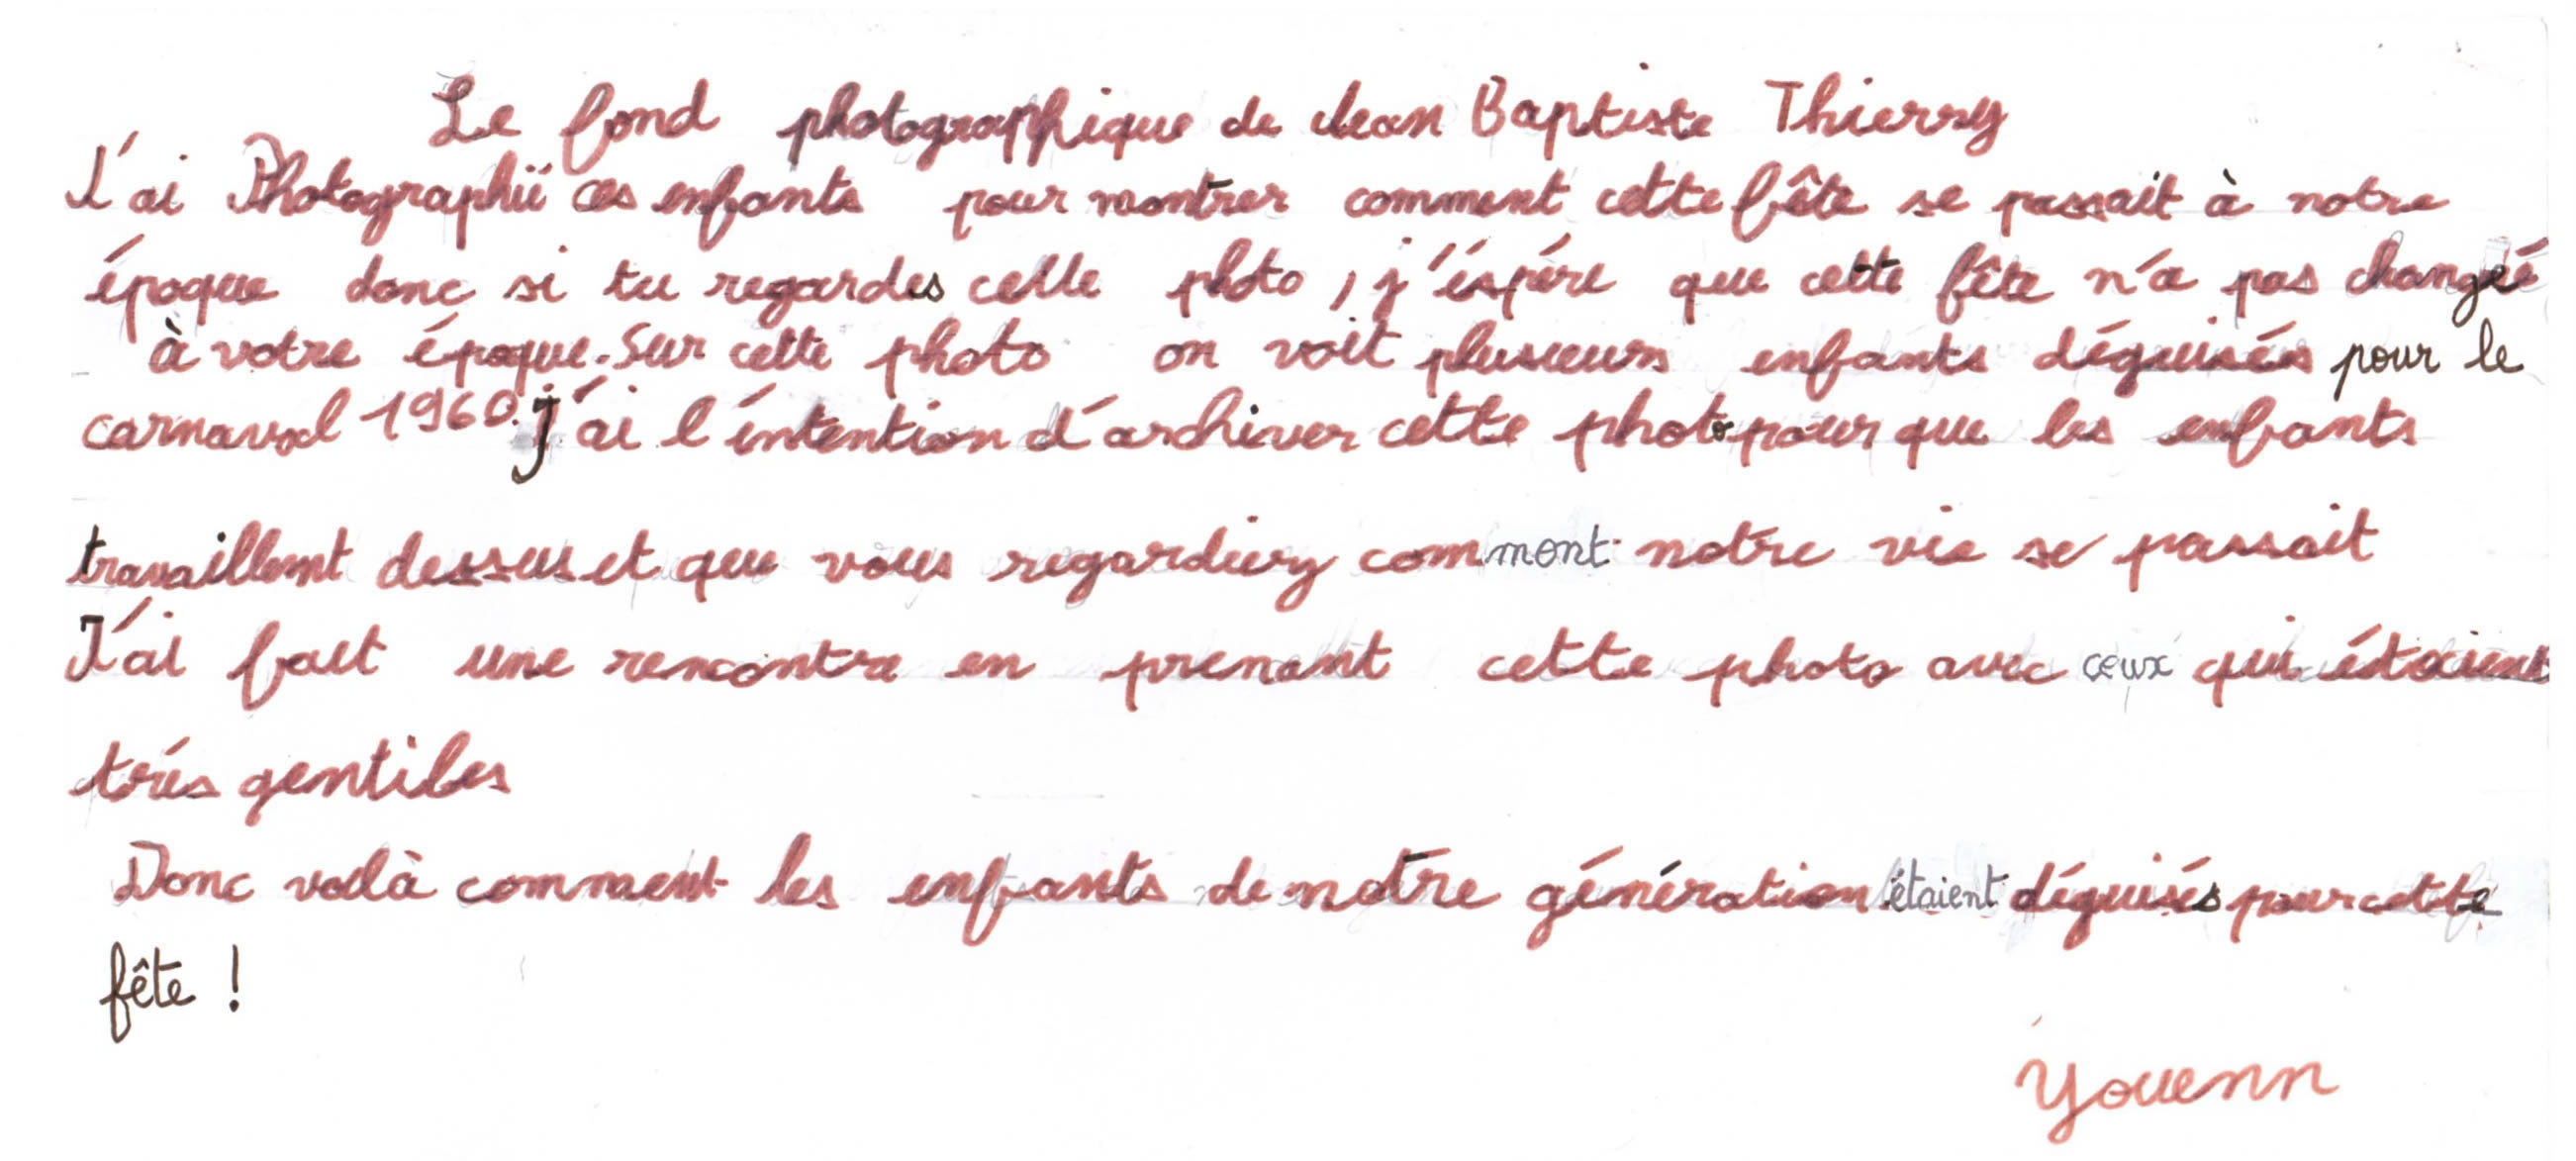 Le fond photographique de Jean Baptiste Thierry
J'ai Photographié ces enfants pour montrer comment cette fête se passait à notre
époque donc si tu regardes cette photo, j'éspére que cette fête n'a pas changé
à votre époque. Sur cette photo on voit plusieurs enfants déguisés pour le
carnaval 1960. j'ai l'intention d'archiver cette photo pour que les enfants
travaillent dessus et que vous regardiez comment notre vie se passait
J'ai fait une rencontre en prenant cette photo avec ceux qui étaient
trés gentiles
Donc voilà comment les enfants de notre génération étaient déguisés pour cette
fête !
Youenn